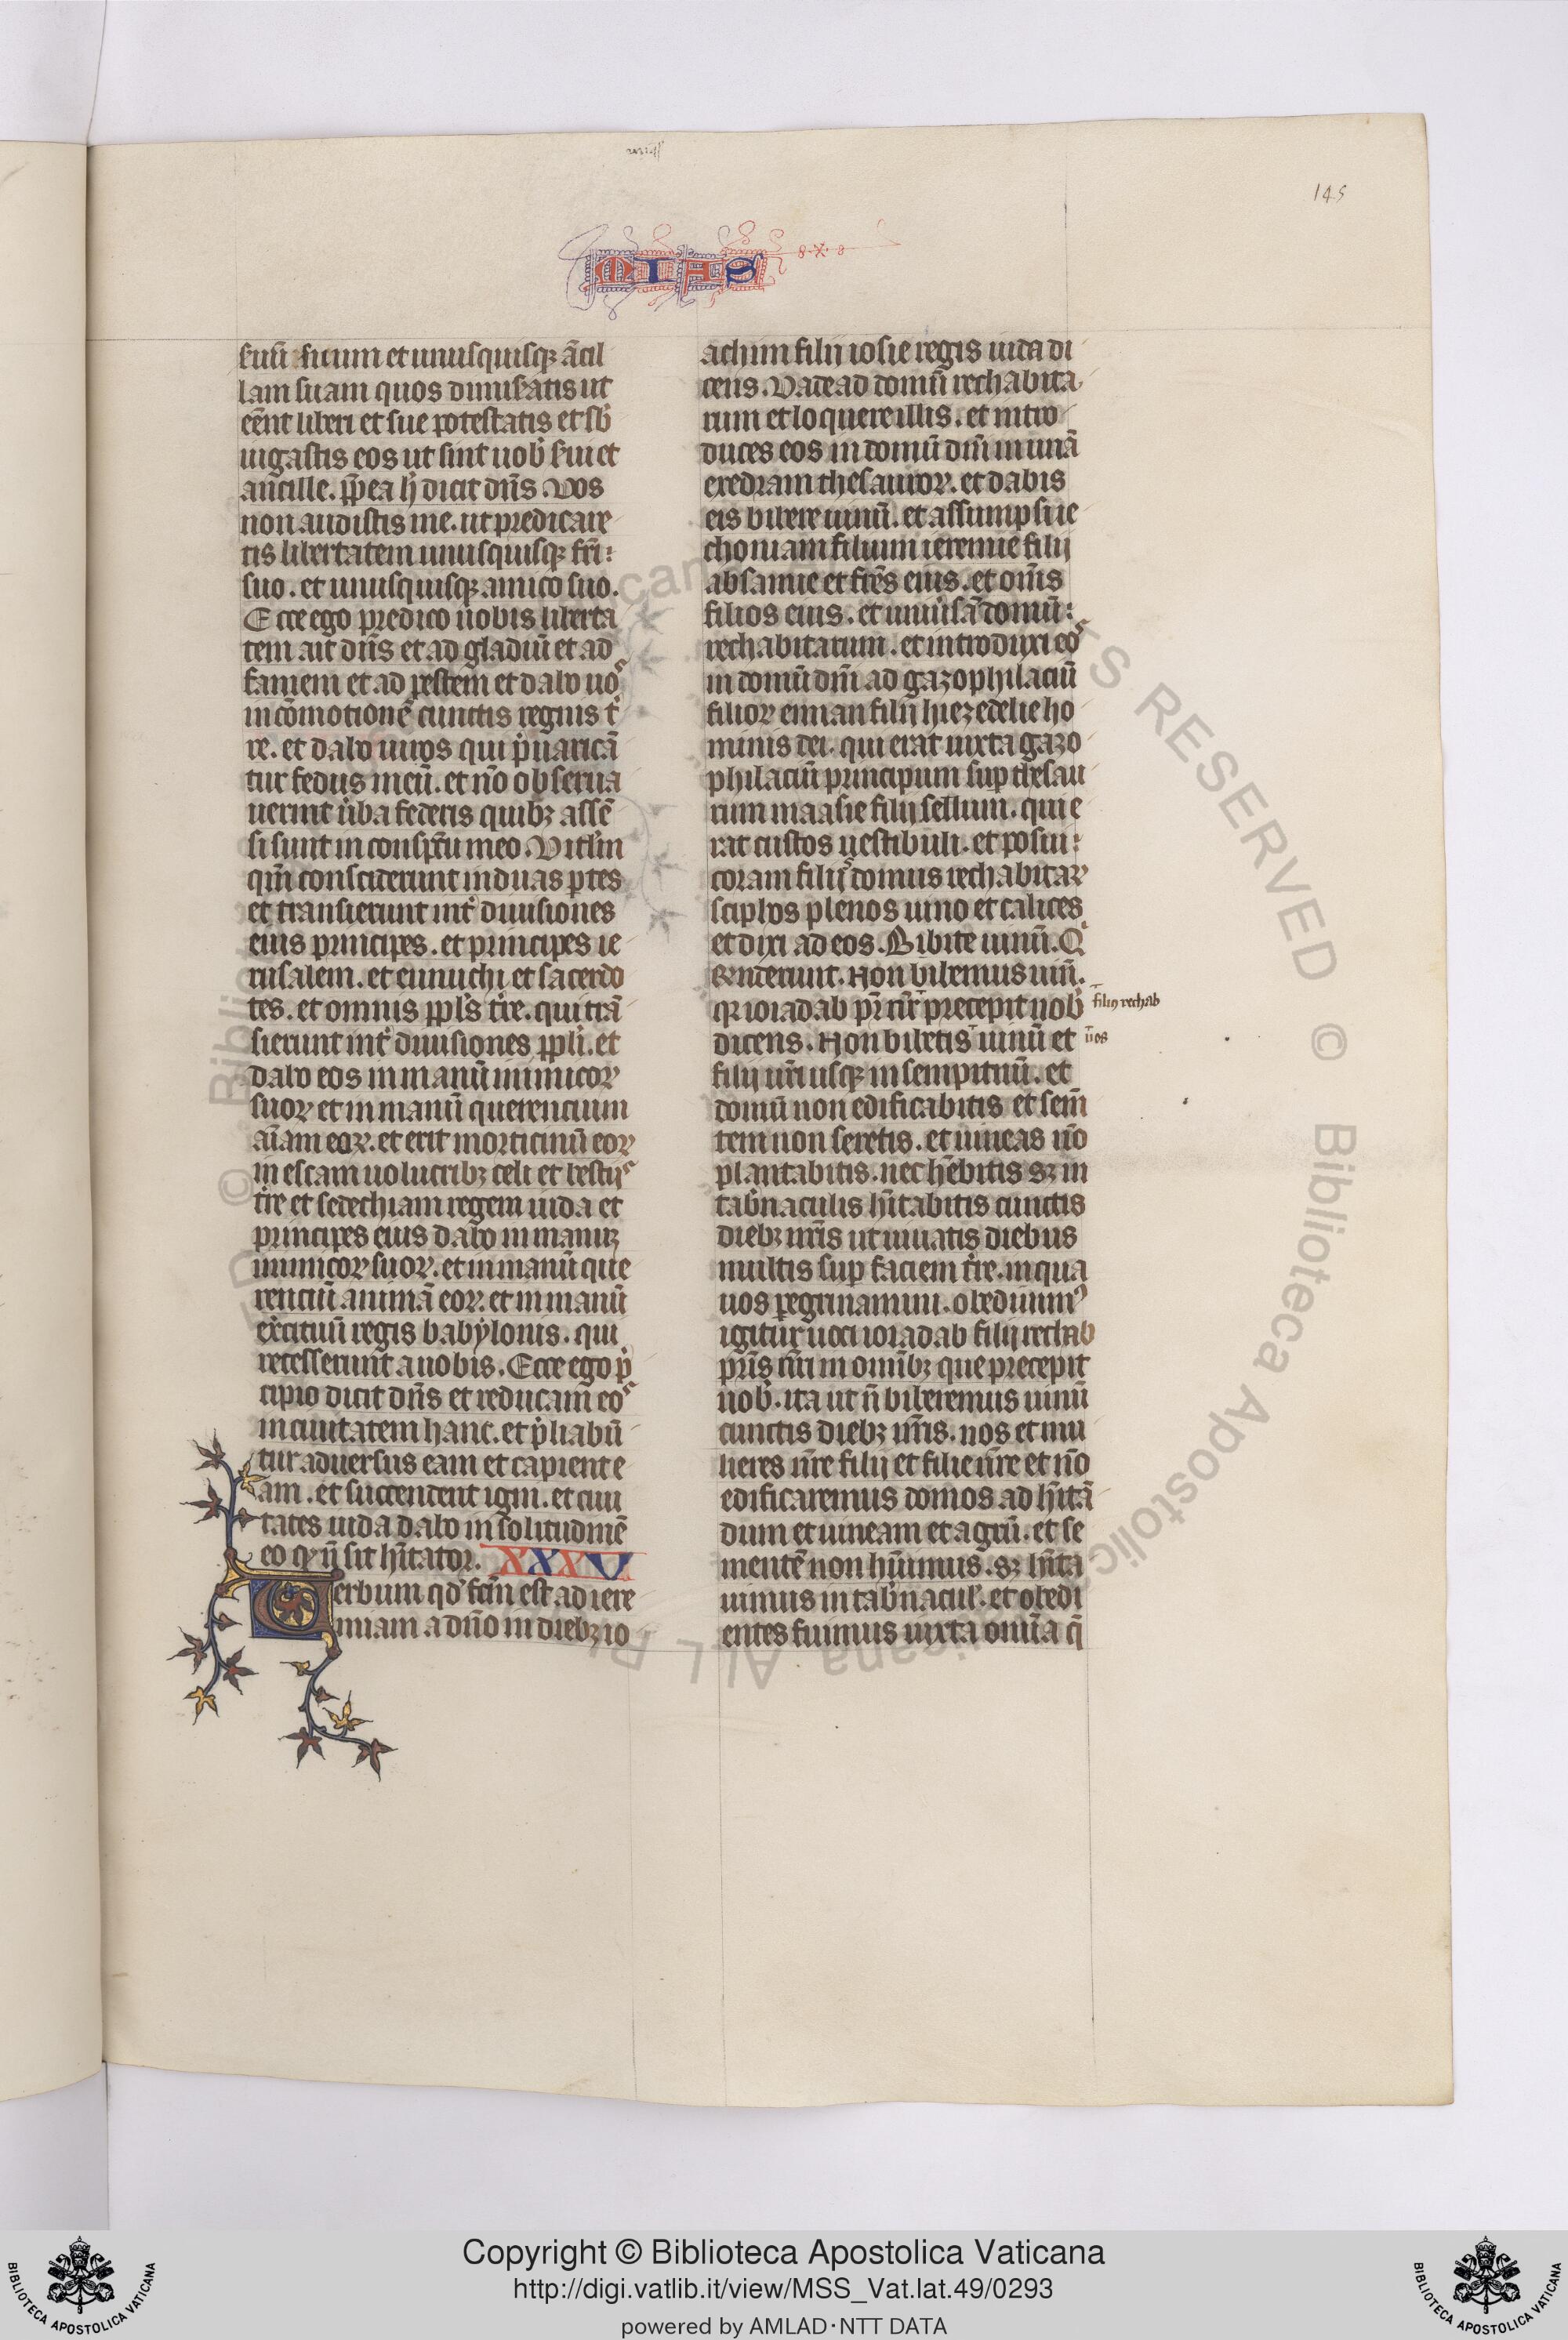 145
MIAS
suũ suum et unusquisqꝫ ãcil
lam suam quos dimisatis ut
eẽnt liberi et sue potestatis et sb̾
iugastis eos ut sint uob̾ sui et
ancille. pp̃ea h̾ dicit dñs. Vos
non audistis me. ut predicare
tis libertatem unusquisqꝫ fr̃i:
suo. et unusquisqꝫ amico suo.
Ecce ego predico uobis liberta
tem ait dñs et ad gladiũ et ad
famem et ad pestem et dabo uoˢ
in cõmotionẽ cunctis regnis t̾
re. et dabo uiros qui p̾uaricã
tur fedus meũ. et nõ obserua
uerint ũba federis quibꝫ assẽ
si sunt in conspc̃u meo. Vitl̃m
qm̃ consciderunt in duas ptes
et transierunt int̾ diuisiones
eius principes. et principes ie
rusalem. et eunuchi et sacerdo
tes. et omnis ppl̃s t̾re. qui trã
sierunt int̾ diuisiones ppl̃i. et
dabo eos in manũ inimicoꝝ
suoꝝ et in manũ querencium
aĩam eoꝝ. et erit morticinũ eoꝝ
in escam uolucribꝫ celi et bestijˢ
t̾re et sedechiam regem iuda et
principes eius dabo in manuꝫ
inimicoꝝ suoꝝ. et in manũ que
renciũ animã eoꝝ. et in manũ
exc̾ituũ regis babylonis. qui
recesserunt a uobis. Ecce ego p̾
cipio dicit dñs et reducam eoˢ
in ciuitatem hanc. et p̾liabũ
tur aduersus eam et capient e
am. et succendent igni. et ciui
tates iuda dabo in solitudinẽ
eo qꝫ ñ sit hĩtator. XXXV
Verbum qd̾ fc̃m est ad iere
miam a dño in diebꝫ io
achim filij iosie regis iuda di
cens. Vade ad domũ rechabita
rum et loquere illis. et intro
duces eos in domũ dñi in unã
exedram thesauroꝝ. et dabis
eis bibere uinũ. et assumpsi ie
choniam filium ieremie filij
absanie et fr̃es eius. et om̃s
filios eius. et uniũsã domũ:
rechabitarum. et introduxi eoˢ
in domũ dñi ad gazophilaciũ
filioꝝ eman filij hiezedelie ho
minis dei. qui erat iuxta gazo
philaciũ principum suꝑ thesau
rum maasie filij sellum. qui e
rat custos uestibuli. et posui:
coram filijˢ domus rechabitaꝝ
sciphos plenos uino et calices
et dixi ad eos. Bibite uinũ. Q̾
rñderunt. Non bibemus uinũ.
qꝛ ioiadab pr̃ nr̃ precepit nob̾
filij rechab
dicens. Non bibetis uinũ et
uos
filij ur̃i usqꝫ in sempitnũ. et
domũ non edificabitis et sem̃
tem non seretis. et uineas nõ
plantabitis. nec hẽbitis sꝫ in
tab̾naculis hĩtabitis cunctis
diebꝫ ur̃is ut uiuatis diebus
multis suꝑ faciem t̾re. in qua
uos peregrinamini. obediuimꝰ
igitur uoci ioiadab filij rechab
pr̃is nr̃i in omnibꝫ que precepit
nob̾. ita ut ñ biberemus uinũ
cunctis diebꝫ nr̃is. nos et mu
lieres nr̃e filij et filie nr̃e et nõ
edificaremus domos ad hĩtã
dum et uineam et agrũ. et se
mentẽ non hũimus. sꝫ hĩta
uimus in tab̾nacul̾. et obedi
entes fuimus iuxta om̃ia q̃
Copyright © Biblioteca Apostolica Vaticana
http://digi.vatlib.it/view/MSS_Vat.lat.49/0293
powered by AMLAD·NTT DATA